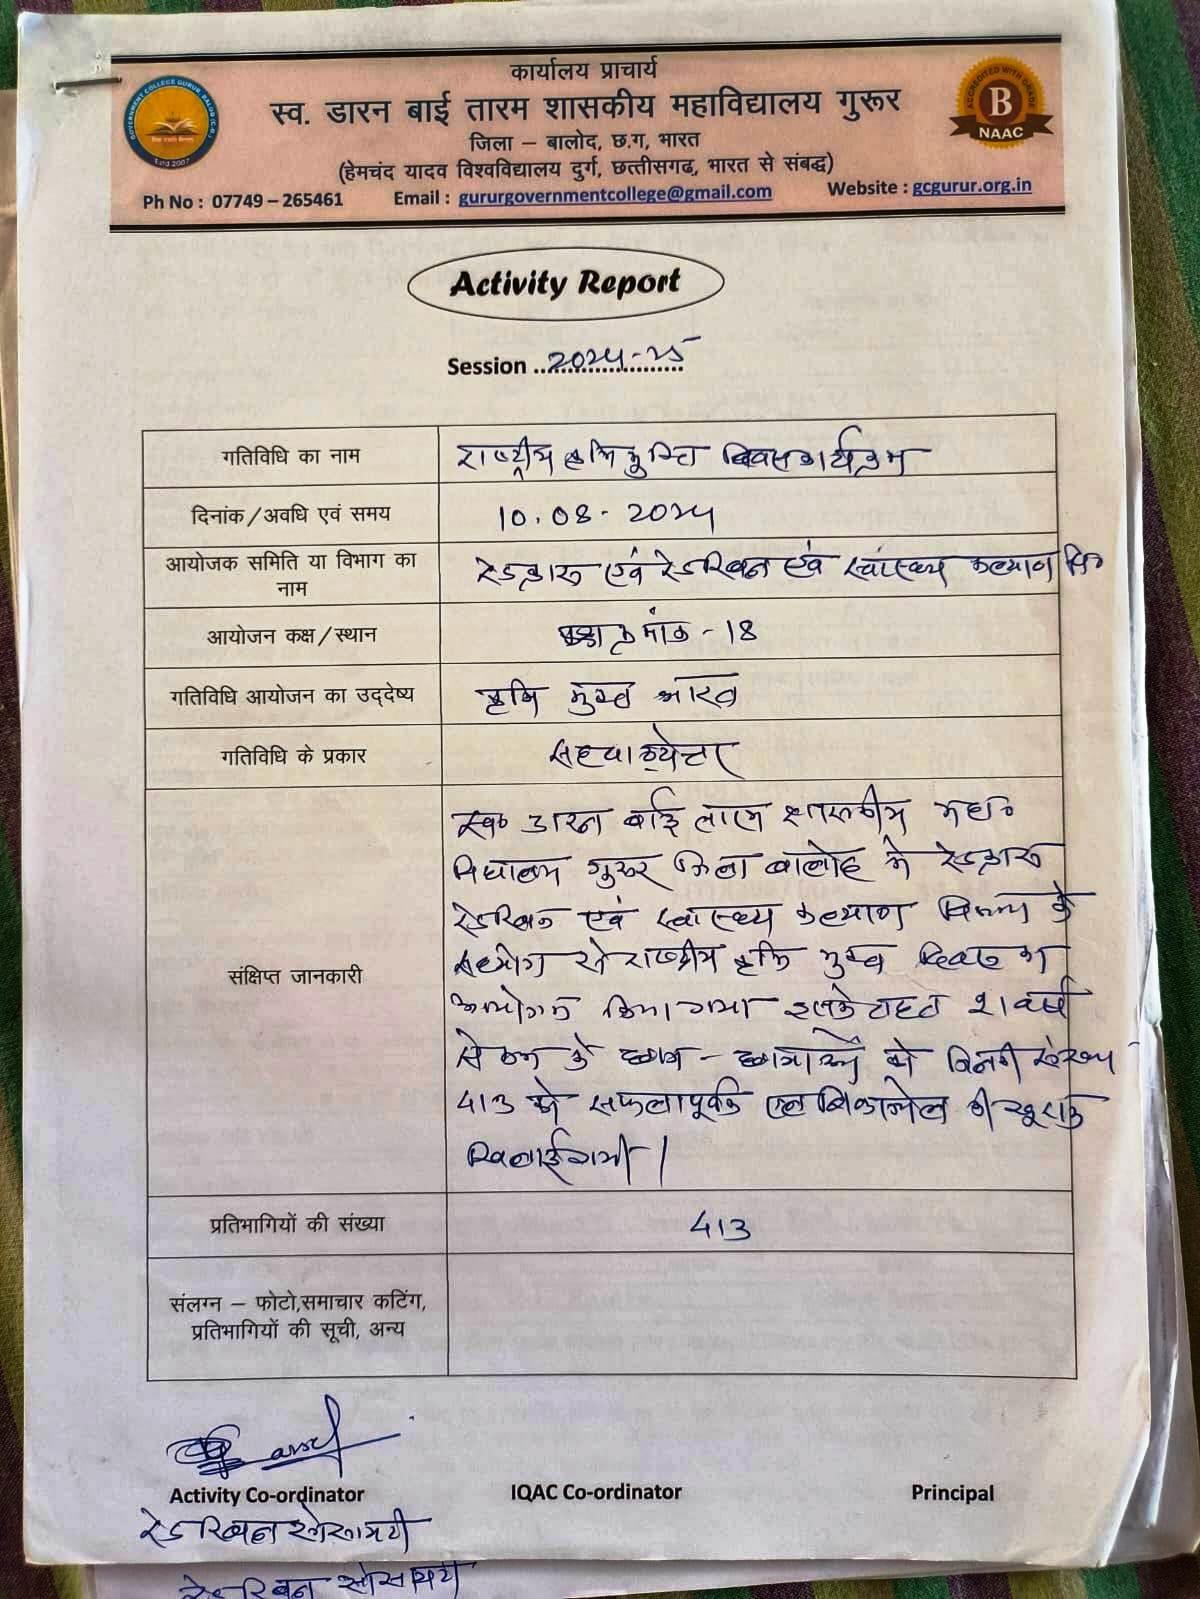 कार्यालय प्राचार्य
स्व. डारन बाई तारम शासकीय महाविद्यालय गुरूर
जिला – बालोद, छ.ग, भारत
(हेमचंद यादव विश्वविद्यालय दुर्ग, छत्तीसगढ, भारत से संबद्ध)
Ph No : 07749 – 265461 Email : gururgovernmentcollege@gmail.com Website : gcgurur.org.in
GOVERNMENT COLLEGE GURUR, BALOD (C.G.)
Estd 2007
ACCREDITED WITH GRADE
B
NAAC
Activity Report
Session ..2024-25
गतिविधि का नाम राष्ट्रीय कृमि मुक्ति दिवस कार्यक्रम
दिनांक/अवधि एवं समय 10.08.2024
आयोजक समिति या विभाग का
नाम
रेडक्रास एवं रेडरिबन एवं स्वास्थ्य कल्याण
आयोजन कक्ष/स्थान क्रमांक - 18
गतिविधि आयोजन का उद्देष्य कृमि मुक्त भारत
गतिविधि के प्रकार
संक्षिप्त जानकारी
स्व० डारन बाई तारम शासकीय महा०
विद्यालय गुरूर जिला बालोद में रेडक्रास
रेडरिबन एवं स्वास्थ्य कल्याण विभाग के
सहयोग से राष्ट्रीय कृमि मुक्त दिवस का
आयोजन किया गया इसके तहत 21 वर्ष
से कम के छात्र - छात्राओं को जिनकी संख्या
413 को सफलापूर्वक एलबेंडाजोल की खूराक
खिलाई गयी।
प्रतिभागियों की संख्या 413
संलग्न – फोटो,समाचार कटिंग,
प्रतिभागियों की सूची, अन्य
Activity Co-ordinator IQAC Co-ordinator Principal
रेड रिबन सोसायटी
रेड रिबन सोसायटी